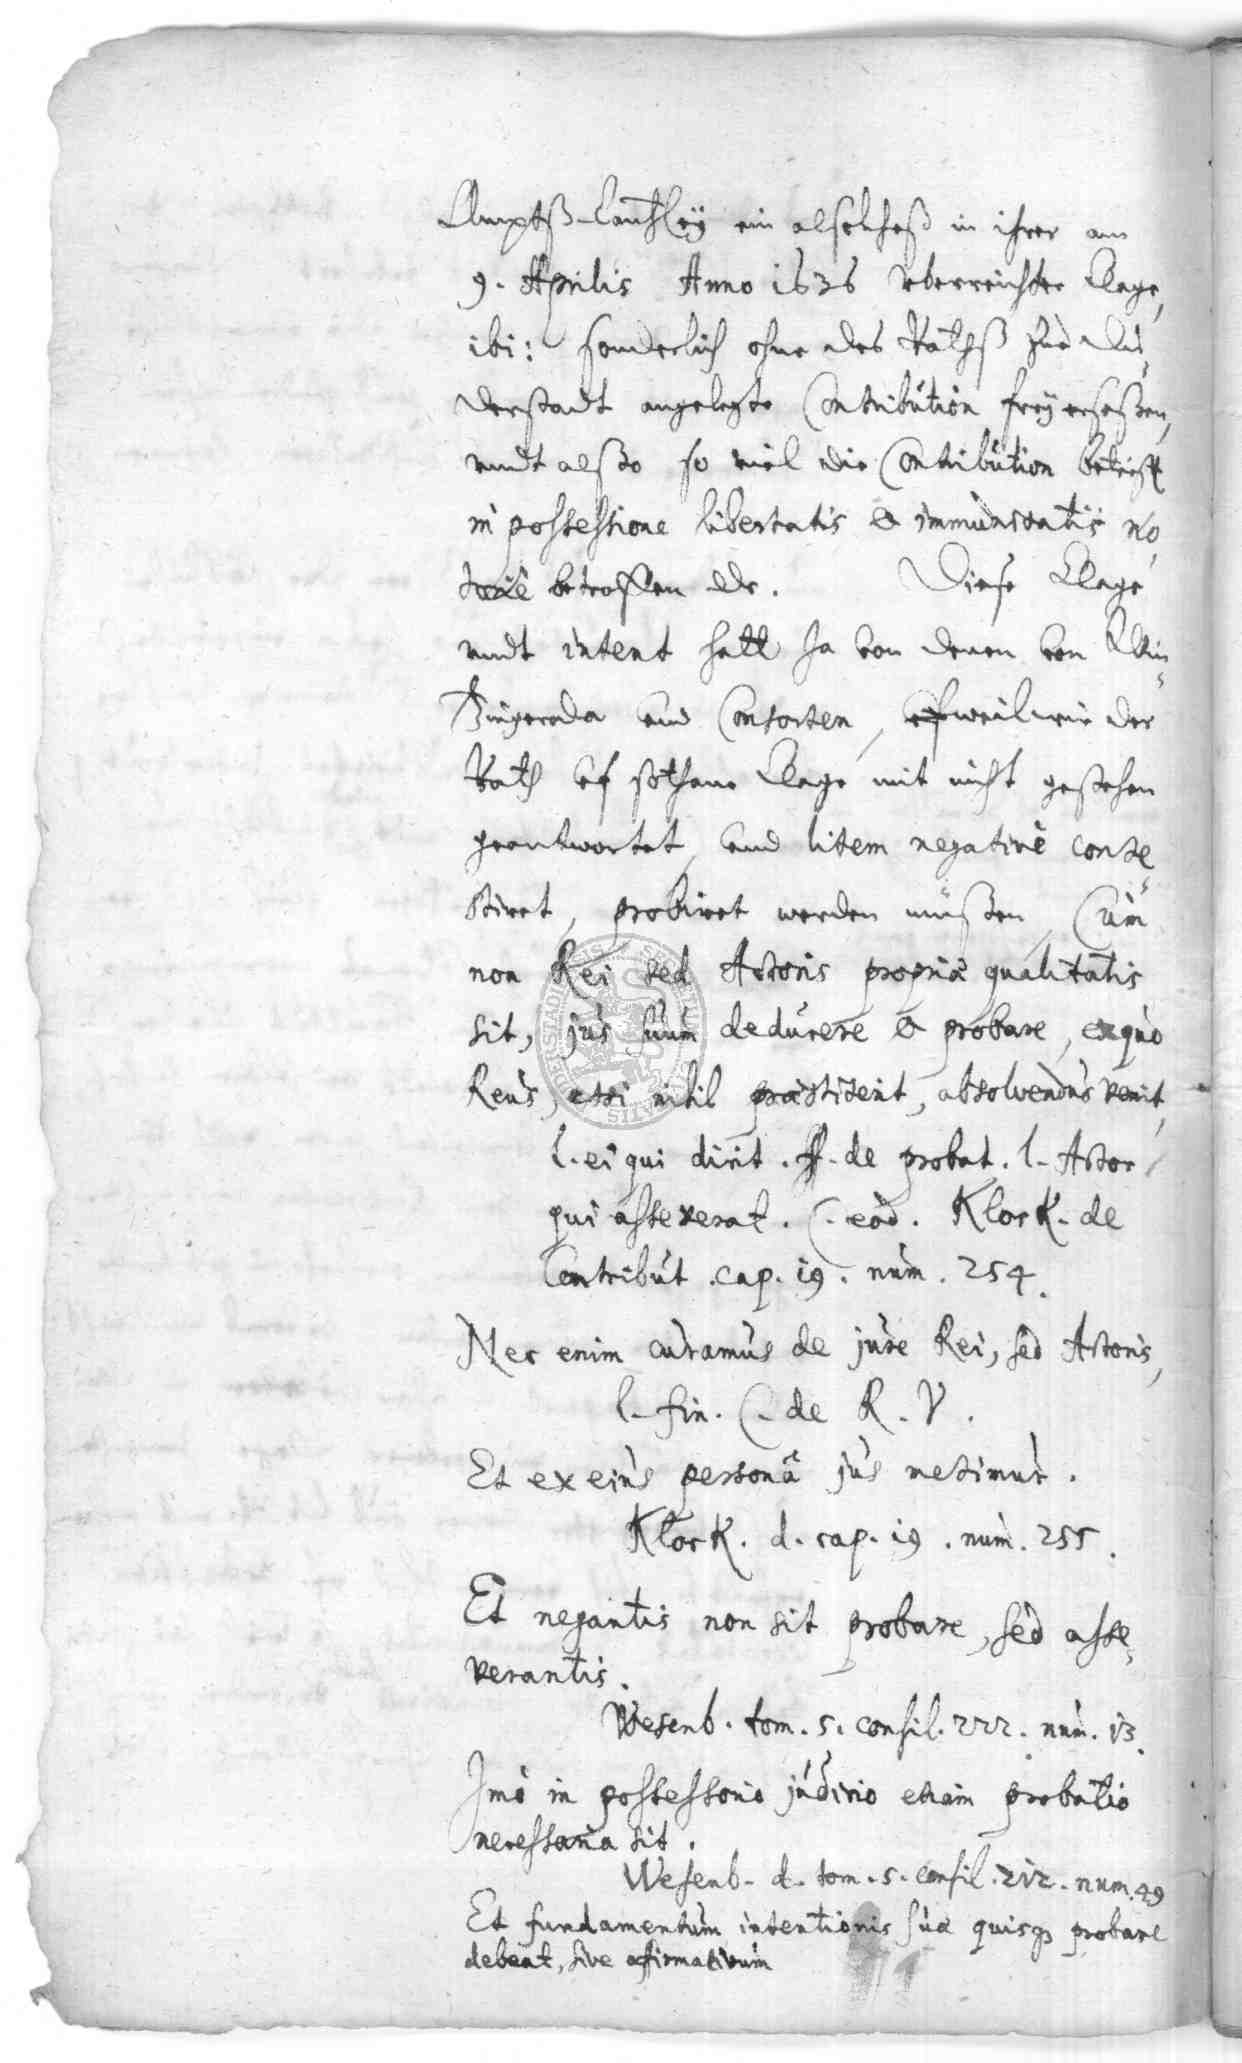 Ampts-Cantzley ein alsolcheß in ihrer am
9. Aprilis Anno 1636 vberreichter Klage,
ibi: sonderlich ohne des Rathß zue Du¬
derstadt angelegte Contribution frey ersessen,
undt alßo so viel die Contribution betrifft
in possessione libertatis & immunitatis no
toriè betroffen etc. Diese Klage
undt intent hatt ja von denen von Win¬
Zingeroda und Consorten, weil wir der
Rath uf sothane Klage mit nicht gestehen
geantwortet, und litem negativè conte
stiret, probiret werden müßen, Cum
non Rei sed Actoris propriæ qualitatis
sit, jus suum deducere & probare, ex quo
Reus, etsi nihil præstiterit, absolvendus venit,
l. ei qui dicit. ff. de probat. l. Actor
qui asseverat. C. eod. Klock. de
Contribut. cap. 19. num. 254.
Nec enim curamus de jure Rei, sed Actoris,
l. fin. C. de R. V.
Et ex eius personâ jus metimur.
Klock. d. cap. 19. num. 255.
Et negantis non sit probare, sed asse¬
verantis.
Wesenb. tom. 5. consil. 222. num. 13.
Imò in possessorio judicio etiam probatio
necessaria sit.
Wesenb. d. tom. 5. consil. 212. num. 49
Et fundamentum intentionis suæ quisq probare
debeat, sive affirmativum